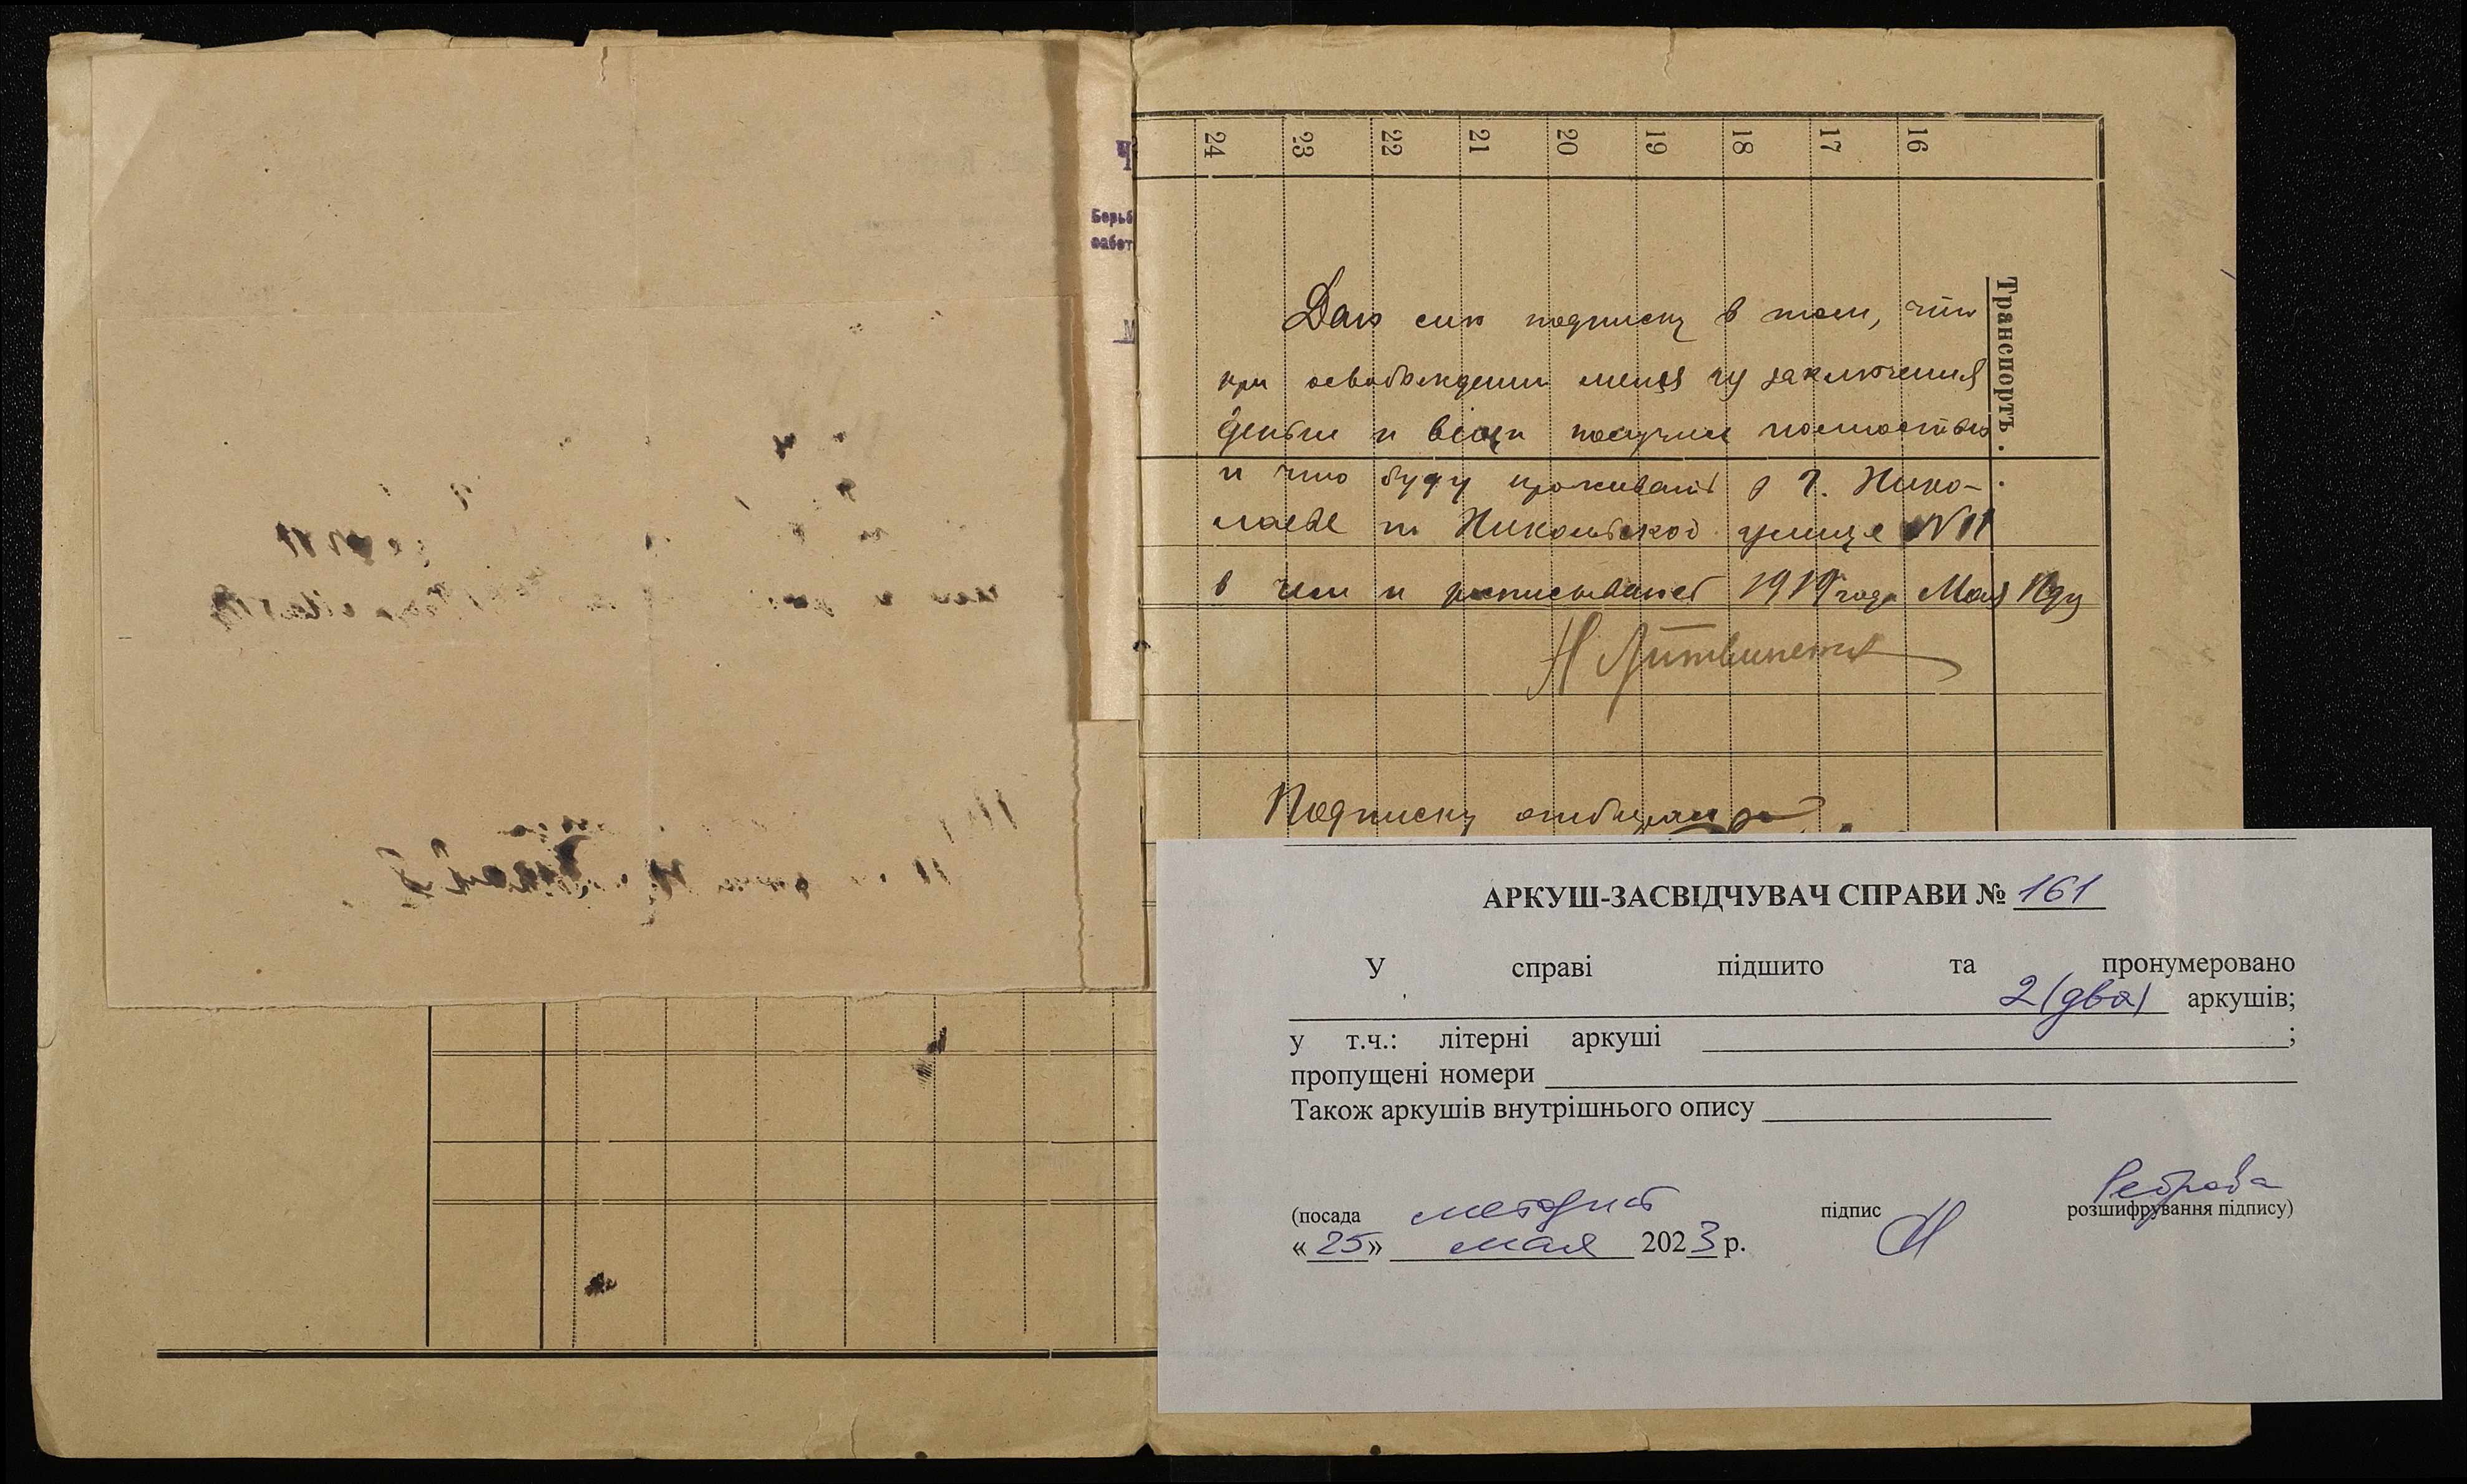 Борьб
сабот
24 23 22 21 20 19 18 17 16
Транспортъ.
Даю сию подписку в том, что
при освобождении меня из заключения
деньги и вещи получил полностью
и что буду проживать в г. Нико-
лаеве по Никольской улице №11
в чем и расписываюсь 1919 года Мая
Н Литвиненко
Подписку отбирал
АРКУШ-ЗАСВІДЧУВАЧ СПРАВИ № 161
У справі підшито та пронумеровано
2 (два) аркушів;
у т.ч.: літерні аркуші ;
пропущені номери
Також аркушів внутрішнього опису
(посада методист підпис Реброва розшифрування підпису)
« 25 » мая 2023 р.